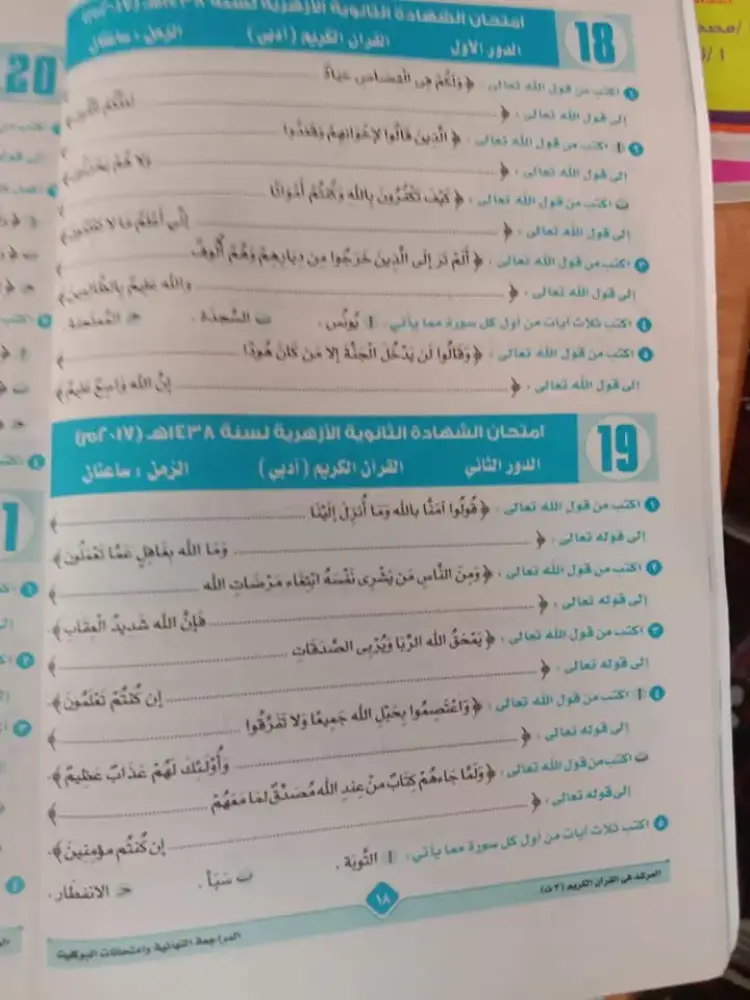 18
امتحان الشهادة الثانوية الأزهرية لسنة ١٤٣٨هـ (٢٠١٧م)
الدور الأول القرآن الكريم (أدبي) الزمن : ساعتان
١ اكتب من قول الله تعالى : ﴿وَلَكُمْ فِي الْقِصَاصِ حَيَاةٌ
إلى قول الله تعالى : ﴿ لَعَلَّكُمْ تَتَّقُونَ﴾
٢ أ اكتب من قول الله تعالى : ﴿الَّذِينَ قَالُوا لِإِخْوَانِهِمْ وَقَعَدُوا ﴾
إلى قول الله تعالى : ﴿ وَلَا هُمْ يَحْزَنُونَ﴾
ب اكتب من قول الله تعالى : ﴿كَيْفَ تَكْفُرُونَ بِاللَّهِ وَكُنْتُمْ أَمْوَاتًا ﴾
إلى قول الله تعالى : ﴿ إِنِّي أَعْلَمُ مَا لَا تَعْلَمُونَ﴾
٣ اكتب من قول الله تعالى : ﴿أَلَمْ تَرَ إِلَى الَّذِينَ خَرَجُوا مِن دِيَارِهِمْ وَهُمْ أُلُوفٌ ﴾
إلى قول الله تعالى : ﴿ وَاللَّهُ عَلِيمٌ بِالظَّالِمِينَ﴾
٤ اكتب ثلاث آيات من أول كل سورة مما يأتي : أ يُونُس . ب السَّجْدَة . جـ الْمُمْتَحَنَة .
٥ اكتب من قول الله تعالى : ﴿وَقَالُوا لَن يَدْخُلَ الْجَنَّةَ إِلَّا مَن كَانَ هُودًا ﴾
إلى قول الله تعالى : ﴿ إِنَّ اللَّهَ وَاسِعٌ عَلِيمٌ﴾
19
امتحان الشهادة الثانوية الأزهرية لسنة ١٤٣٨هـ (٢٠١٧م)
الدور الثاني القرآن الكريم (أدبي) الزمن : ساعتان
١ اكتب من قول الله تعالى : ﴿قُولُوا آمَنَّا بِاللَّهِ وَمَا أُنزِلَ إِلَيْنَا ﴾
إلى قوله تعالى : ﴿ وَمَا اللَّهُ بِغَافِلٍ عَمَّا تَعْمَلُونَ﴾
٢ اكتب من قول الله تعالى : ﴿وَمِنَ النَّاسِ مَن يَشْرِي نَفْسَهُ ابْتِغَاءَ مَرْضَاتِ اللَّهِ ﴾
إلى قوله تعالى : ﴿ فَإِنَّ اللَّهَ شَدِيدُ الْعِقَابِ﴾.
٣ اكتب من قول الله تعالى : ﴿يَمْحَقُ اللَّهُ الرِّبَا وَيُرْبِي الصَّدَقَاتِ ﴾
إلى قوله تعالى : ﴿ إِن كُنتُمْ تَعْلَمُونَ﴾.
٤ أ اكتب من قول الله تعالى : ﴿وَاعْتَصِمُوا بِحَبْلِ اللَّهِ جَمِيعًا وَلَا تَفَرَّقُوا ﴾
إلى قوله تعالى : ﴿ وَأُوْلَئِكَ لَهُمْ عَذَابٌ عَظِيمٌ﴾.
ب اكتب من قول الله تعالى : ﴿وَلَمَّا جَاءَهُمْ كِتَابٌ مِنْ عِندِ اللَّهِ مُصَدِّقٌ لِمَا مَعَهُمْ ﴾
إلى قوله تعالى : ﴿ إِن كُنتُم مُؤْمِنِينَ﴾.
٥ اكتب ثلاث آيات من أول كل سورة مما يأتي : أ التَّوْبَة . ب سَبَأ . جـ الانفطار .
المرشد فى القرآن الكريم (٣ ث) ١٨ المراجعة النهائية وامتحانات البوكليت
20